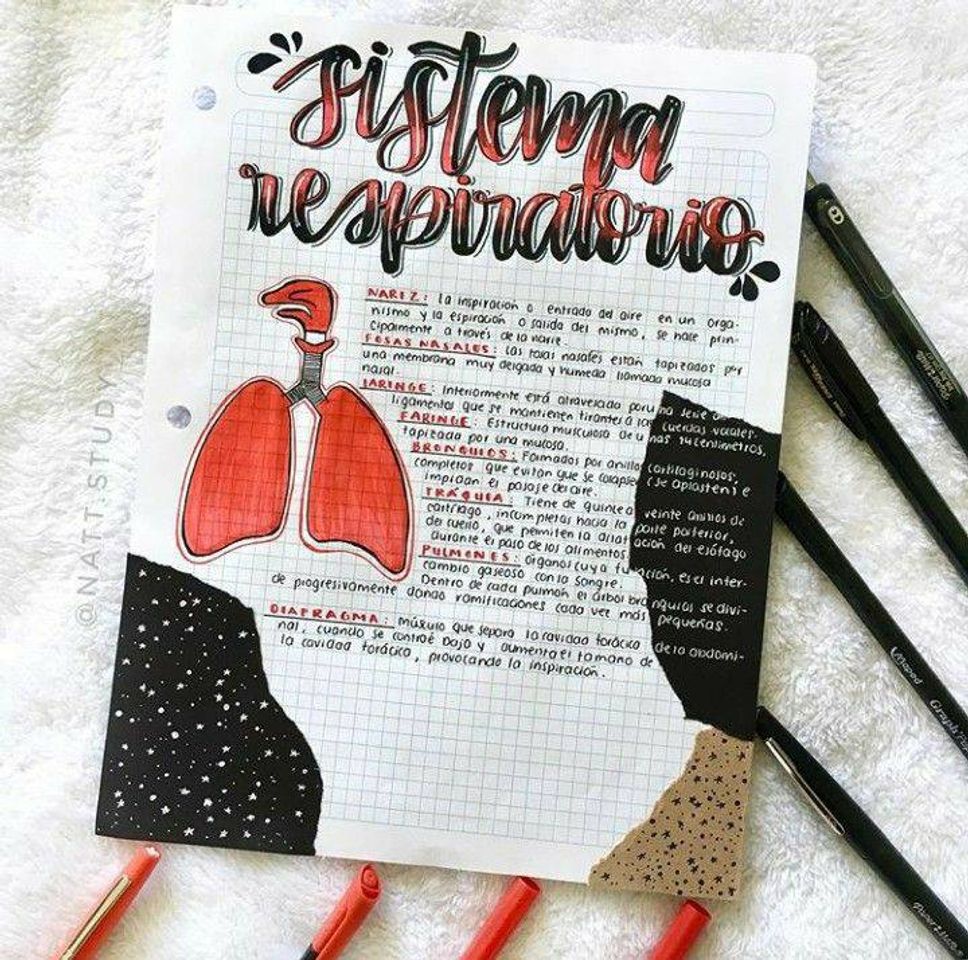 sistema
respiratorio
NARIZ: la inspiración o entrada del aire en un orga-
nismo y la espiración o salida del mismo, se hace prin-
cipalmente a través de la narie.
FOSAS NASALES: las fosas nasales están tapizados por
una membrana muy delgada y humeda llamada mucosa
nasal.
LARINGE: Interiormente está atravesada por una serie de
ligamentos que se mantienen tirantes a las cuerdas vocales.
FARINGE: Estructura musculosa de unos 14 centímetros,
tapizada por una mucosa.
BRONQUIOS: Formados por anillos cartilaginosos,
completos que evitan que se colapsen (se aplasten) e
impidan el pasaje del aire.
TRÁQUIA: Tiene de quince a veinte anillos de
cartílago, incompletos hacia la parte posterior,
del cuello, que permiten la dilatación del esófago
durante el paso de los alimentos.
PULMONES: órganos cuya función, es el inter-
cambio gaseoso con la sangre.
Dentro de cada pulmon el árbol bronquios se divi-
de progresivamente dando ramificaciones cada vez más pequeñas.
DIAFRAGMA: múskulo que separa la cavidad torácica de la abdomi-
nal, cuando se contraé bajo y aumenta el tamaño de
la cavidad torácica, provocando la inspiración.
@NATT.STUDY